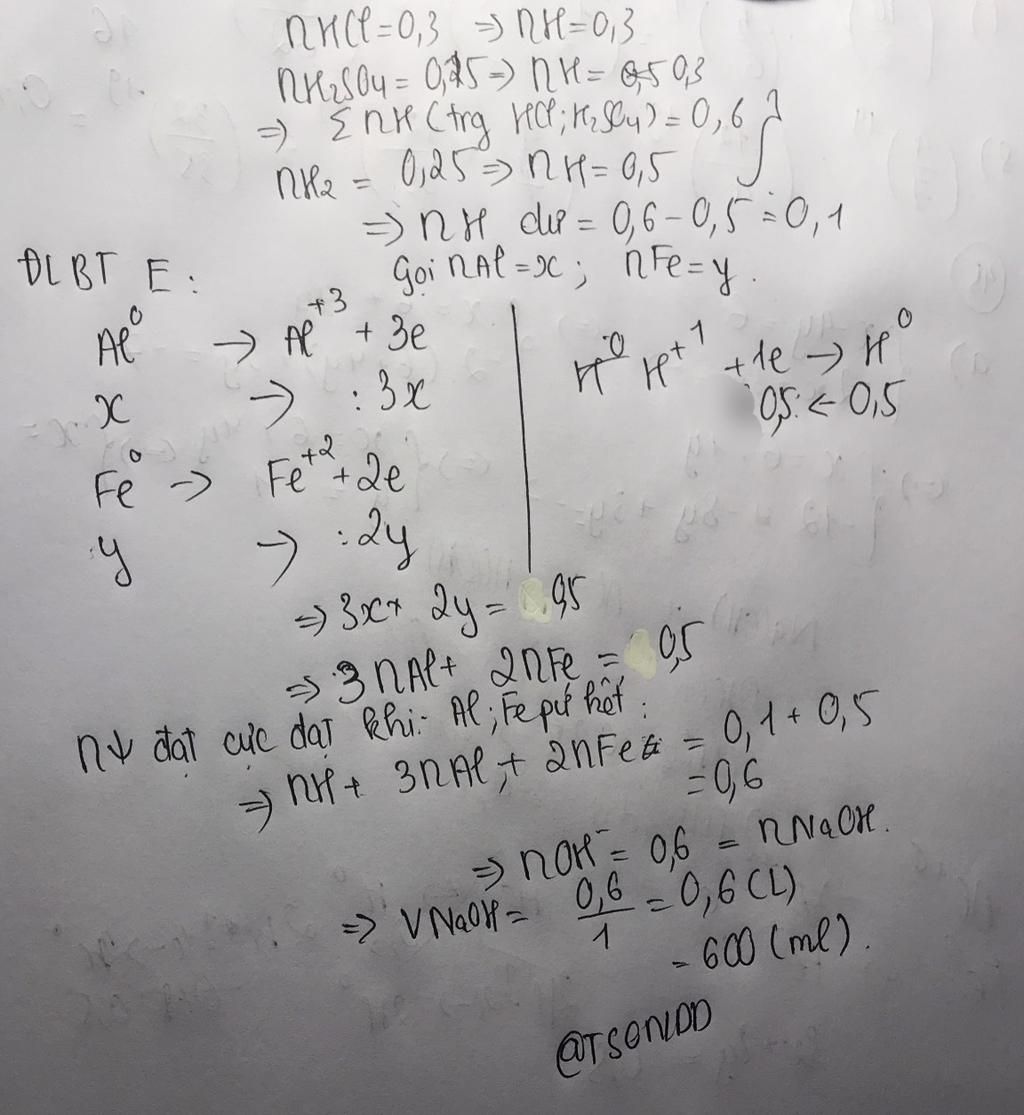 nHCl = 0,3 => nH = 0,3
nH₂SO₄ = 0,15 => nH = 0,3
=> Σ nH (trg HCl; H₂SO₄) = 0,6 }
nH₂ = 0,25 => nH = 0,5
=> nH dư = 0,6 - 0,5 = 0,1
ĐLBT E : Gọi nAl = x ; nFe = y .
Al⁰ → Al⁺³ + 3e
H⁺¹ + 1e → H⁰
x → : 3x
0,5 : ← 0,5
Fe⁰ → Fe⁺² + 2e
y → : 2y
=> 3x + 2y = 0,5
=> 3nAl + 2nFe = 0,5
n↓ đạt cực đạt khi: Al ; Fe pứ hết :
=> nH + 3nAl + 2nFe = 0,1 + 0,5
= 0,6
=> nOH⁻ = 0,6 = nNaOH.
=> VNaOH = 0,6/1 = 0,6 (L)
= 600 (ml).
@TSONLDD